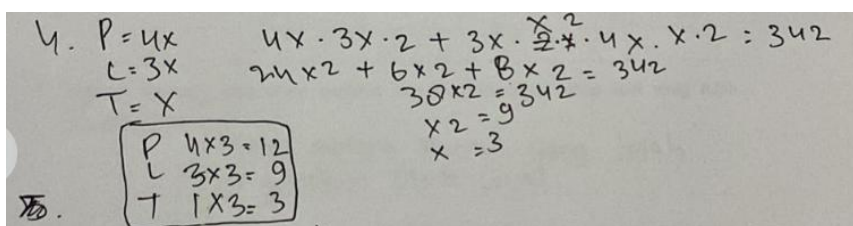 4. P = 4x 4x . 3x . 2 + 3x . x . 2 . 4x . x . 2 = 342
L = 3x 24x2 + 6x2 + 8x2 = 342
T = x 38x2 = 342
x2 = 9
x = 3
P 4x3 = 12
L 3x3 = 9
T 1x3 = 3
.